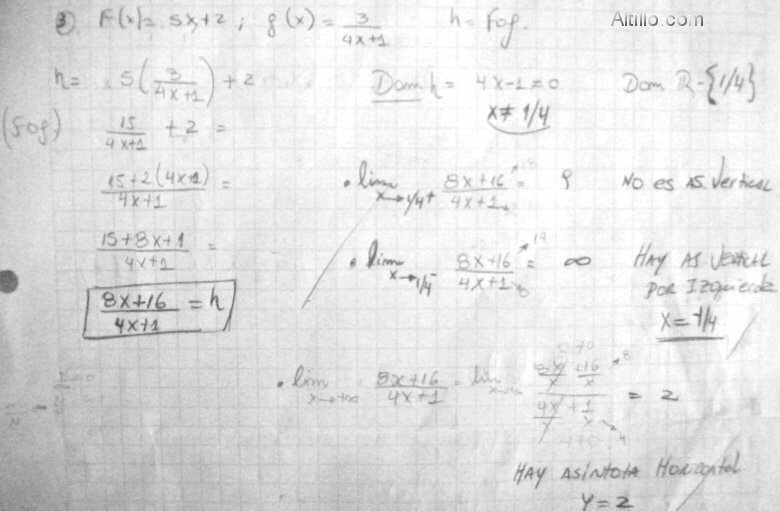 ③ F(x)= 5x+2 ; g(x) = 3/(4x+1) h= Fog. Altillo.com
h= 5(3/(4x+1)) + 2 Dom h = 4x-1≠0 Dom R-{1/4}
(Fog) 15/(4x+1) + 2 = x≠ 1/4
(15+2(4x+1))/(4x+1) = • lim x→1/4+ (8x+16)/(4x+1) = No es AS. Vertical
(15+8x+1)/(4x+1) = • lim x→1/4- (8x+16)/(4x+1) = ∞ HAY AS Vertical
por Izquierda
(8x+16)/(4x+1) = h
• lim x→+∞ (8x+16)/(4x+1) = lim (8x/x + 16/x)/(4x/x + 1/x) = 2
HAY ASINTOTA Horizontal
Y=2